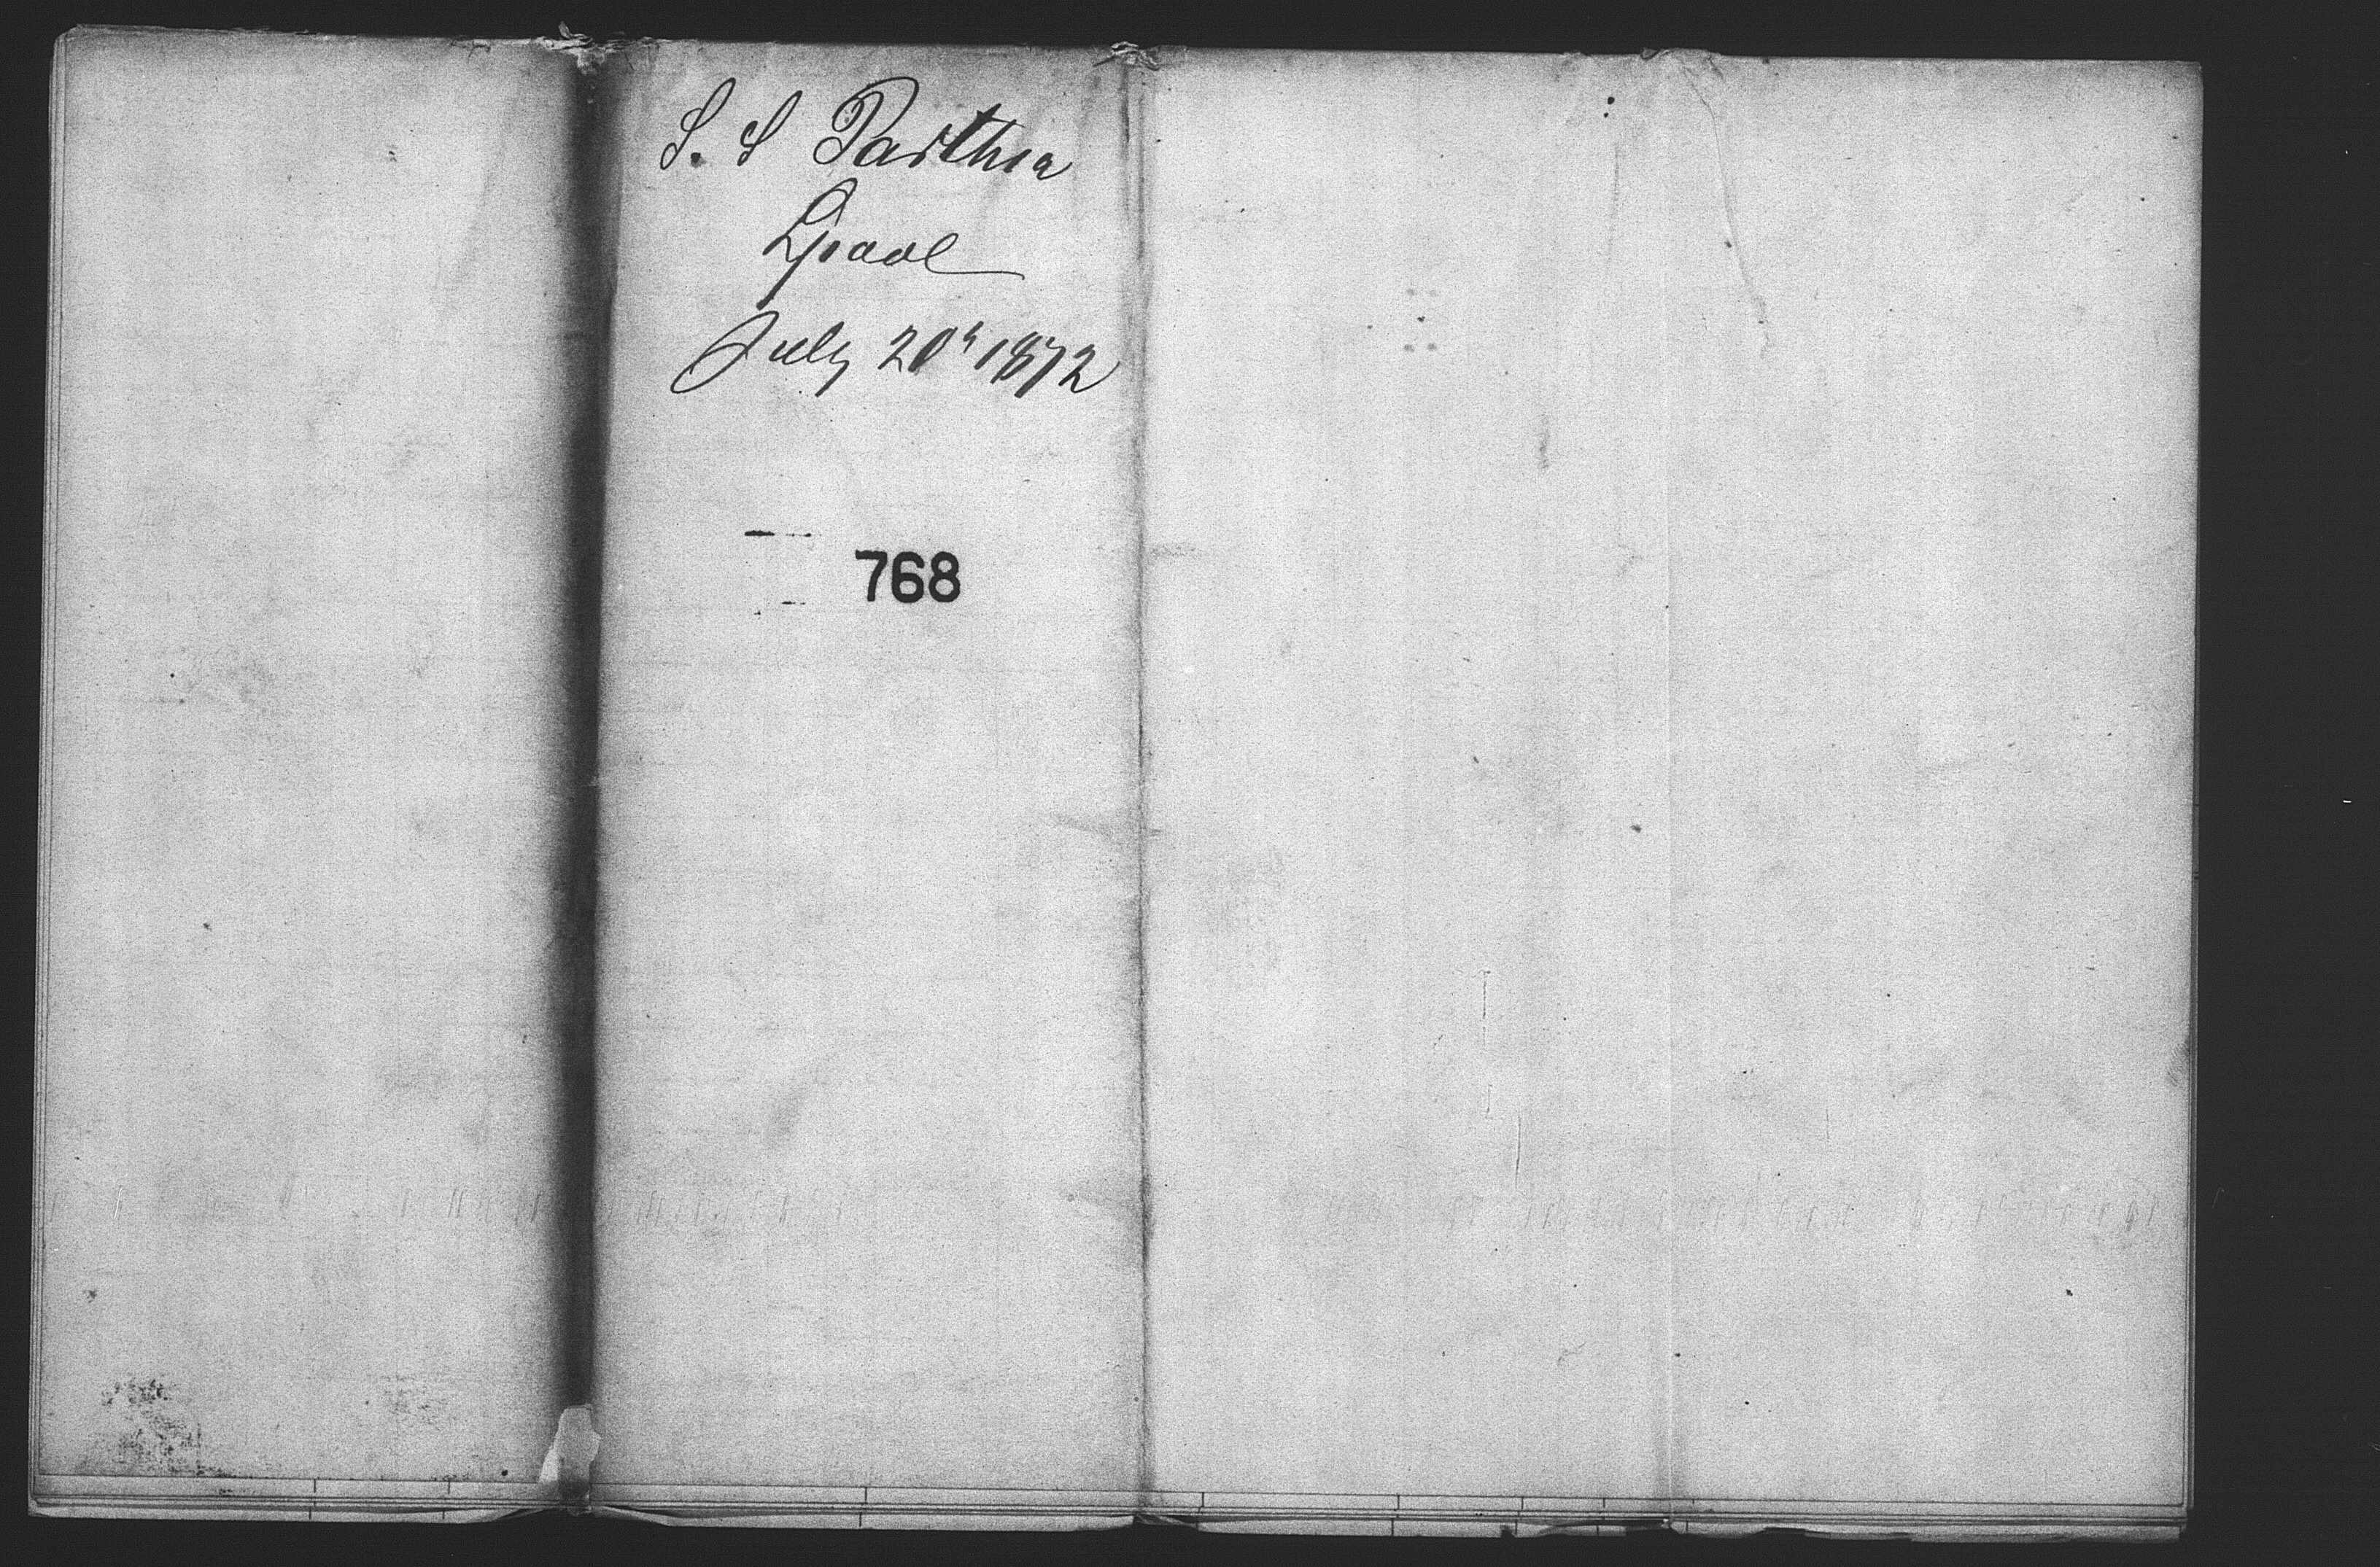 S. S Parthia
Lpool
July 20th 1872
768